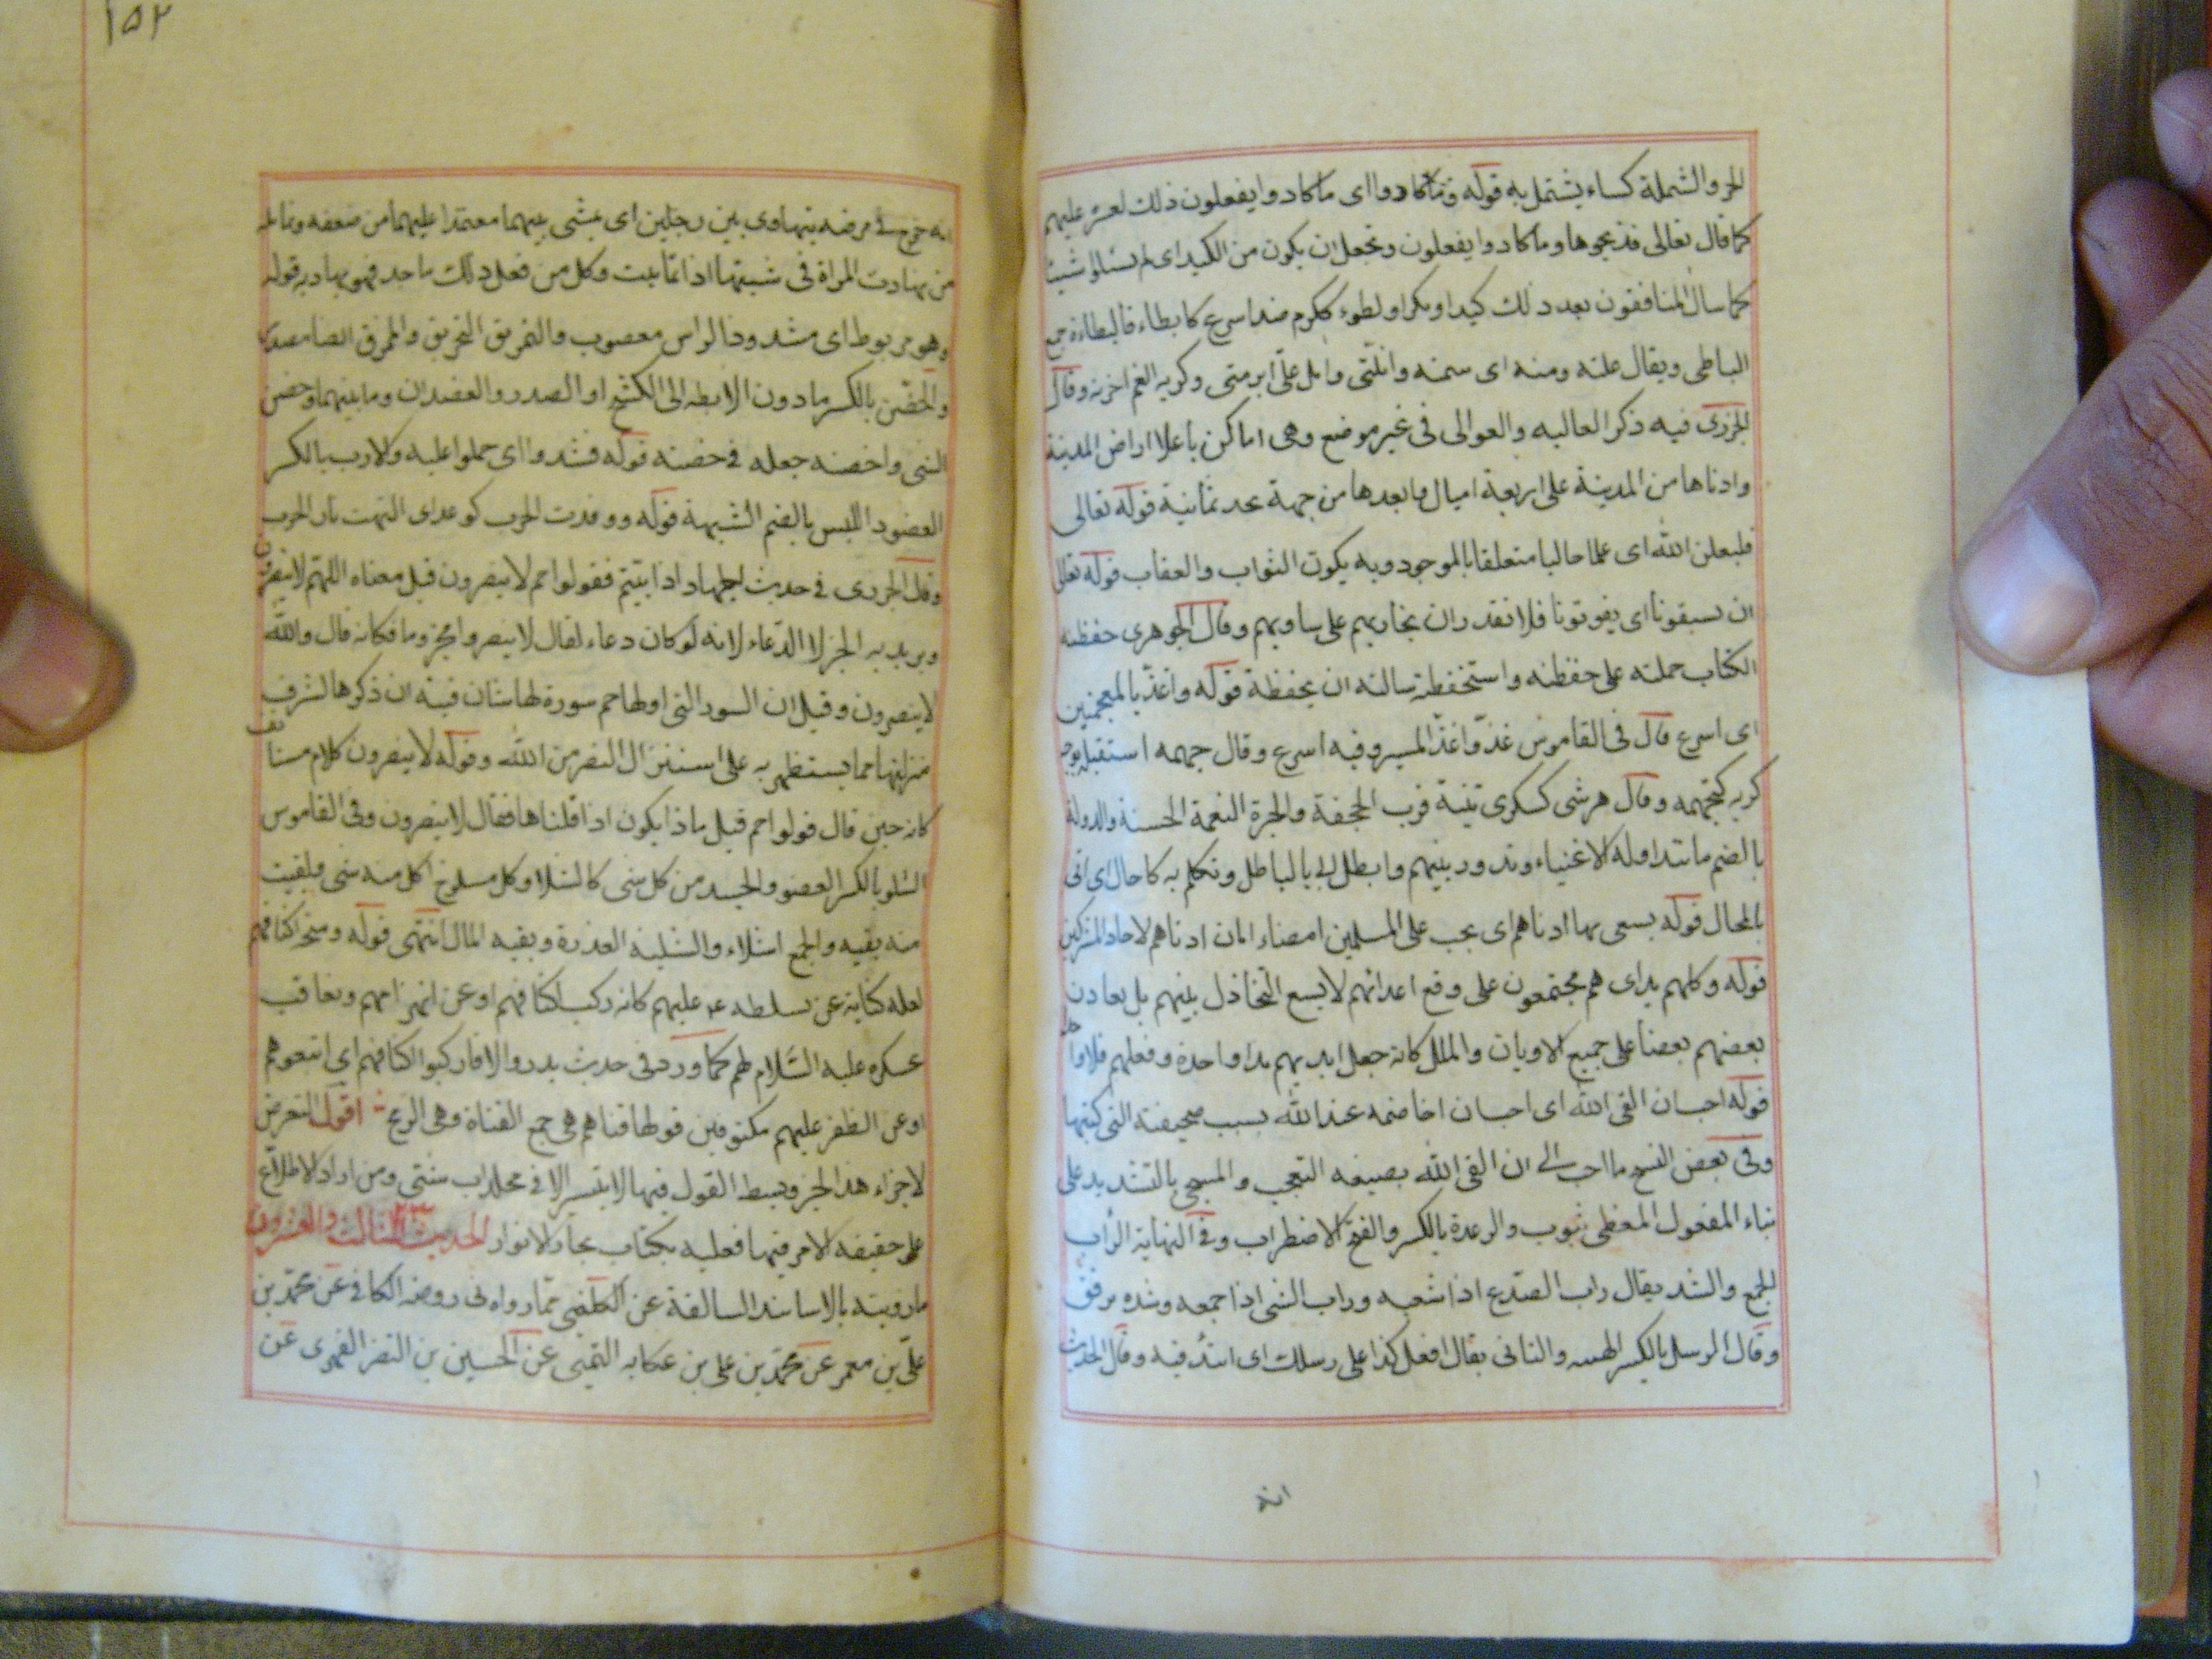 الحر والشملة كساء يشتمل به قوله وما كادوا اى ما كادوا يفعلون ذلك لعسر عليهم
كما قال تعالى فذبحوها وما كادوا يفعلون ويحتمل ان يكون من الكيد اى لم يسئلوا شيئا
كما سال المنافقون بعد ذلك كيدا ومكرا وبطوء ككرم ضد اسرع كابطاء فالبطاءة جمع
الباطى ويقال علته ومنه اى سمته وكربه الغم اخربه وقال
الجزرى فيه ذكر العاليه والعوالى فى غير موضع وهى اماكن باعلا اراض المدينة
وادناها من المدينة على اربعة اميال وابعدها من جهة نجد ثمانية قوله تعالى
فليعلمن الله اى علما حاليا متعلقا بالموجود وبه يكون الثواب والعقاب قوله تعالى
ان يسبقونا اى يفوتونا فلا نقدر ان نجازيهم على مساويهم وقال الجوهرى حفظته
الكتاب حملته على حفظه واستحفظته سالته ان يحفظه قوله واغذ بالمعجمتين
اى اسرع قال فى القاموس غذ واغذ المسير وفيه اسرع وقال جهمه استقبله بوجه
كريه كتجهمه وقال هرشى كسكرى ثنية قرب الجحفة والحبرة النعمة الحسنة والدولة
بالضم ما يتداوله الاغنياء وتدور بينهم وابطل اى بالباطل وتكلم به كاحال اى اتى
بالمحال قوله يسعى بها ادناهم اى يجب على المسلمين امضاء امان ادناهم لاحاد المشركين
قوله وكلهم يد اى هم مجتمعون على دفع اعدائهم لا يسع التخاذل بينهم بل يعاون
بعضهم بعضا على جميع الاديان والملل كانه جعل ايديهم يدا واحدة وفعلهم فعلا واحدا
قوله احب ان القى الله اى احب ان اخاصمه عند الله بسبب صحيفته التى كتبها
وفى بعض النسخ ما احب الى ان القى الله بصيغه التعجب والمسجى بالتشديد على
بناء المفعول المغطى بثوب والرعدة بالكسر والفتح الاضطراب وفى النهاية الراب
الجمع والشد يقال راب الصدع اذا شعبه وراب الشى اذا جمعه وشده برفق
وقال الرسل بالكسر الهينه والتانى يقال افعل كذا على رسلك اى اتئد فيه وقال الحديث
انه
١٥٢
انه خرج فى مرضه يتهادى بين رجلين اى يمشى بينهما معتمدا عليهما من ضعفه وتمايله
من تهادت المراة فى مشيتها اذا تمايلت وكل من فعل ذلك باحد فهو يهاديه قوله
وهو مربوط اى مشدود الراس معصوب والتمزيق التخريق والممزق ايضا مصدر
والحضن بالكسر ما دون الابط الى الكشح او الصدر والعضدان وما بينهما وحضن
الشى واحضنه جعله فى حضنه قوله فشدوا اى حملوا عليه والارب بالكسر
العضو واللبس بالضم الشبهة قوله ووقدت الحرب كوعد اى التهبت نار الحرب
وقال الجزرى فى حديث الجهاد اذا بيتم فقولوا حم لا ينصرون قيل معناه اللهم لا ينصرون
ويريد به الخبر لا الدعاء لانه لو كان دعاء لقال لا ينصروا مجزوما فكانه قال والله
لا ينصرون وقيل ان السور التى اولها حم سورة لها شان فنبه ان ذكرها لشرف
منزلتها مما يستظهر به على استنزال النصر من الله وقوله لا ينصرون كلام مستانف
كانه حين قال قولوا حم قيل ماذا يكون اذا قلناها فقال لا ينصرون وفى القاموس
الشلو بالكسر العضو والجسد من كل شى كالشلا وكل مسلوخ اكل منه شى وبقيت
منه بقيه والجمع اشلاء والشلية الفدرة وبقيه المال انتهى قوله ومنح اكتافهم
لعله كناية عن تسلطه ع عليهم كانه ركب اكتافهم او عن انهزامهم وتعاقب
عسكره عليه السّلام لهم كما ورد فى حديث بدر والا فاركبوا اكتافهم اى اتبعوهم
او عن الظفر عليهم مكتوفين قولها قناهم هى جمع القناة وهى الرمح اقول التعرض
لاجزاء هذا الخبر وبسط القول فيها لا يتيسر الا فى مجلدات شتى ومن اراد الاطلاع
على حقيقه الامر فيها فعليه بكتاب بحار الانوار الحديث الثالث والعشرون
مارويته بالاسانيد السالفة عن الكلينى مما رواه فى روضه الكافى عن محمد بن
على بن معمر عن محمد بن على بن عكايه التميمى عن الحسين بن النضر الفهرى عن